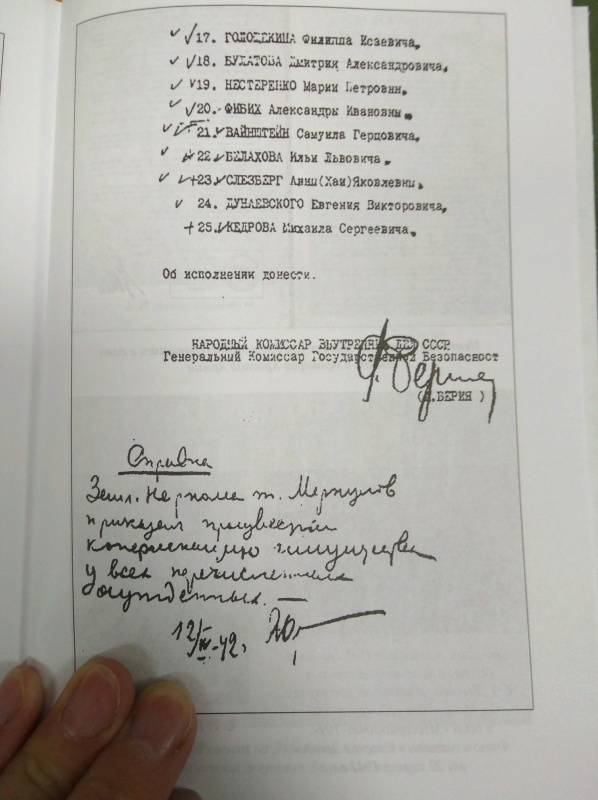 17. ГОЛОЩЕКИНА Филиппа Исаевича,
18. БУЛАТОВА Дмитрия Александровича,
19. НЕСТЕРЕНКО Марии Петровны,
20. ФИБИХ Александры Ивановны,
21. ВАЙНШТЕЙН Самуила Герцовича,
22. БЕЛАХОВА Ильи Львовича,
23. СЛЕЗБЕРГ Анны(Хаи)Яковлевны,
24. ДУНАЕВСКОГО Евгения Викторовича,
25. КЕДРОВА Михаила Сергеевича.
Об исполнении донести.
НАРОДНЫЙ КОМИССАР ВНУТРЕННИХ ДЕЛ СССР
Генеральный Комиссар Государственной Безопасност
(Л.БЕРИЯ )
Справка
Зам. Наркома т. Меркулов
приказал произвести
конфискацию имущества
у всех перечисленных
осужденных. —
12/IV-42г.